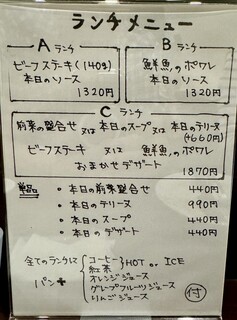 ランチメニュー
A ランチ
ビーフステーキ(140g)
本日のソース
1320円
B ランチ
鮮魚のポワレ
本日のソース
1320円
C ランチ
前菜の盛合せ 又は 本日のスープ 又は 本日のテリーヌ
(+660円)
ビーフステーキ 又は 鮮魚のポワレ
おまかせデザート
1870円
単品
・本日の前菜盛合せ 440円
・本日のテリーヌ 990円
・本日のスープ 440円
・本日のデザート 440円
全てのランチに コーヒー HOT or ICE
紅茶
オレンジジュース
パン+ グレープフルーツジュース
りんごジュース 付